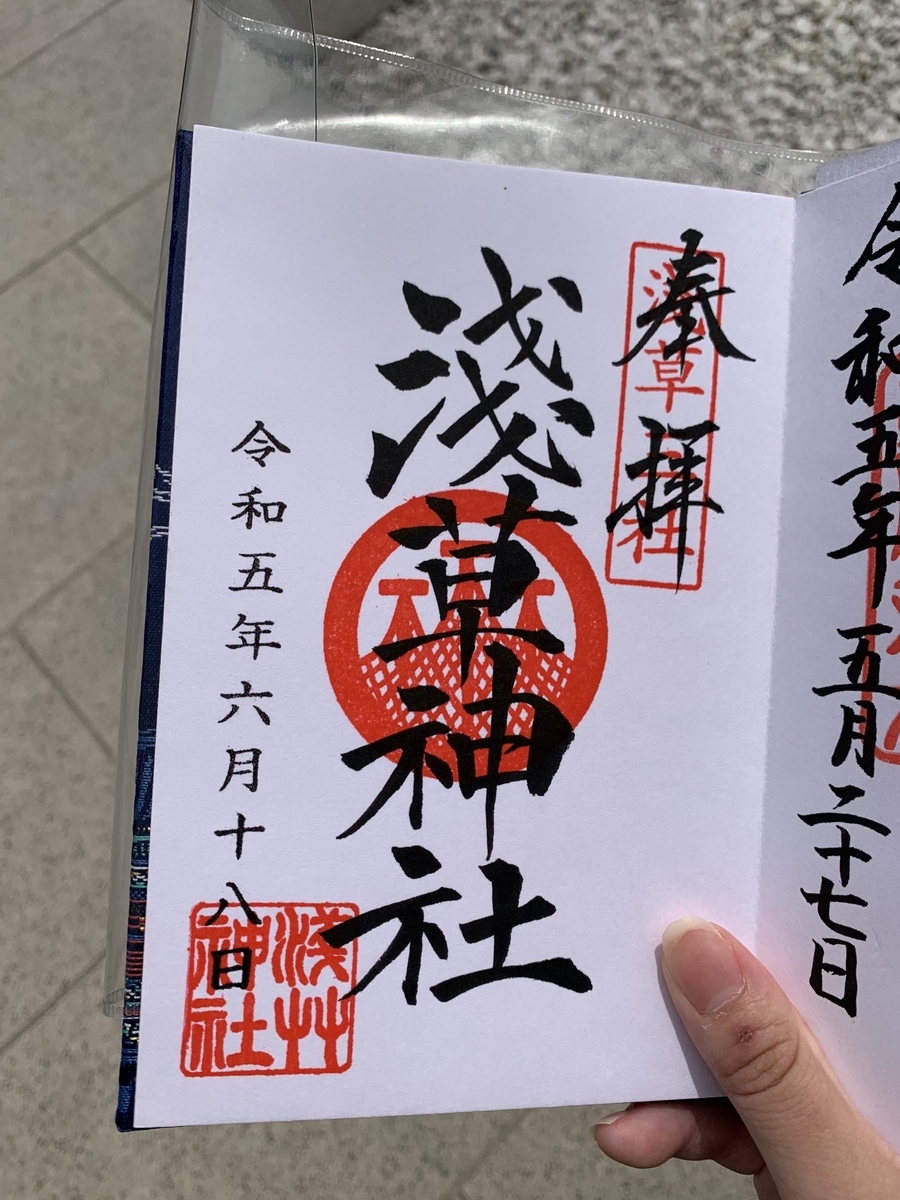 令和五年五月二十七日
奉拝
淺草神社
淺草神社
令和五年六月十八日
淺艸神社